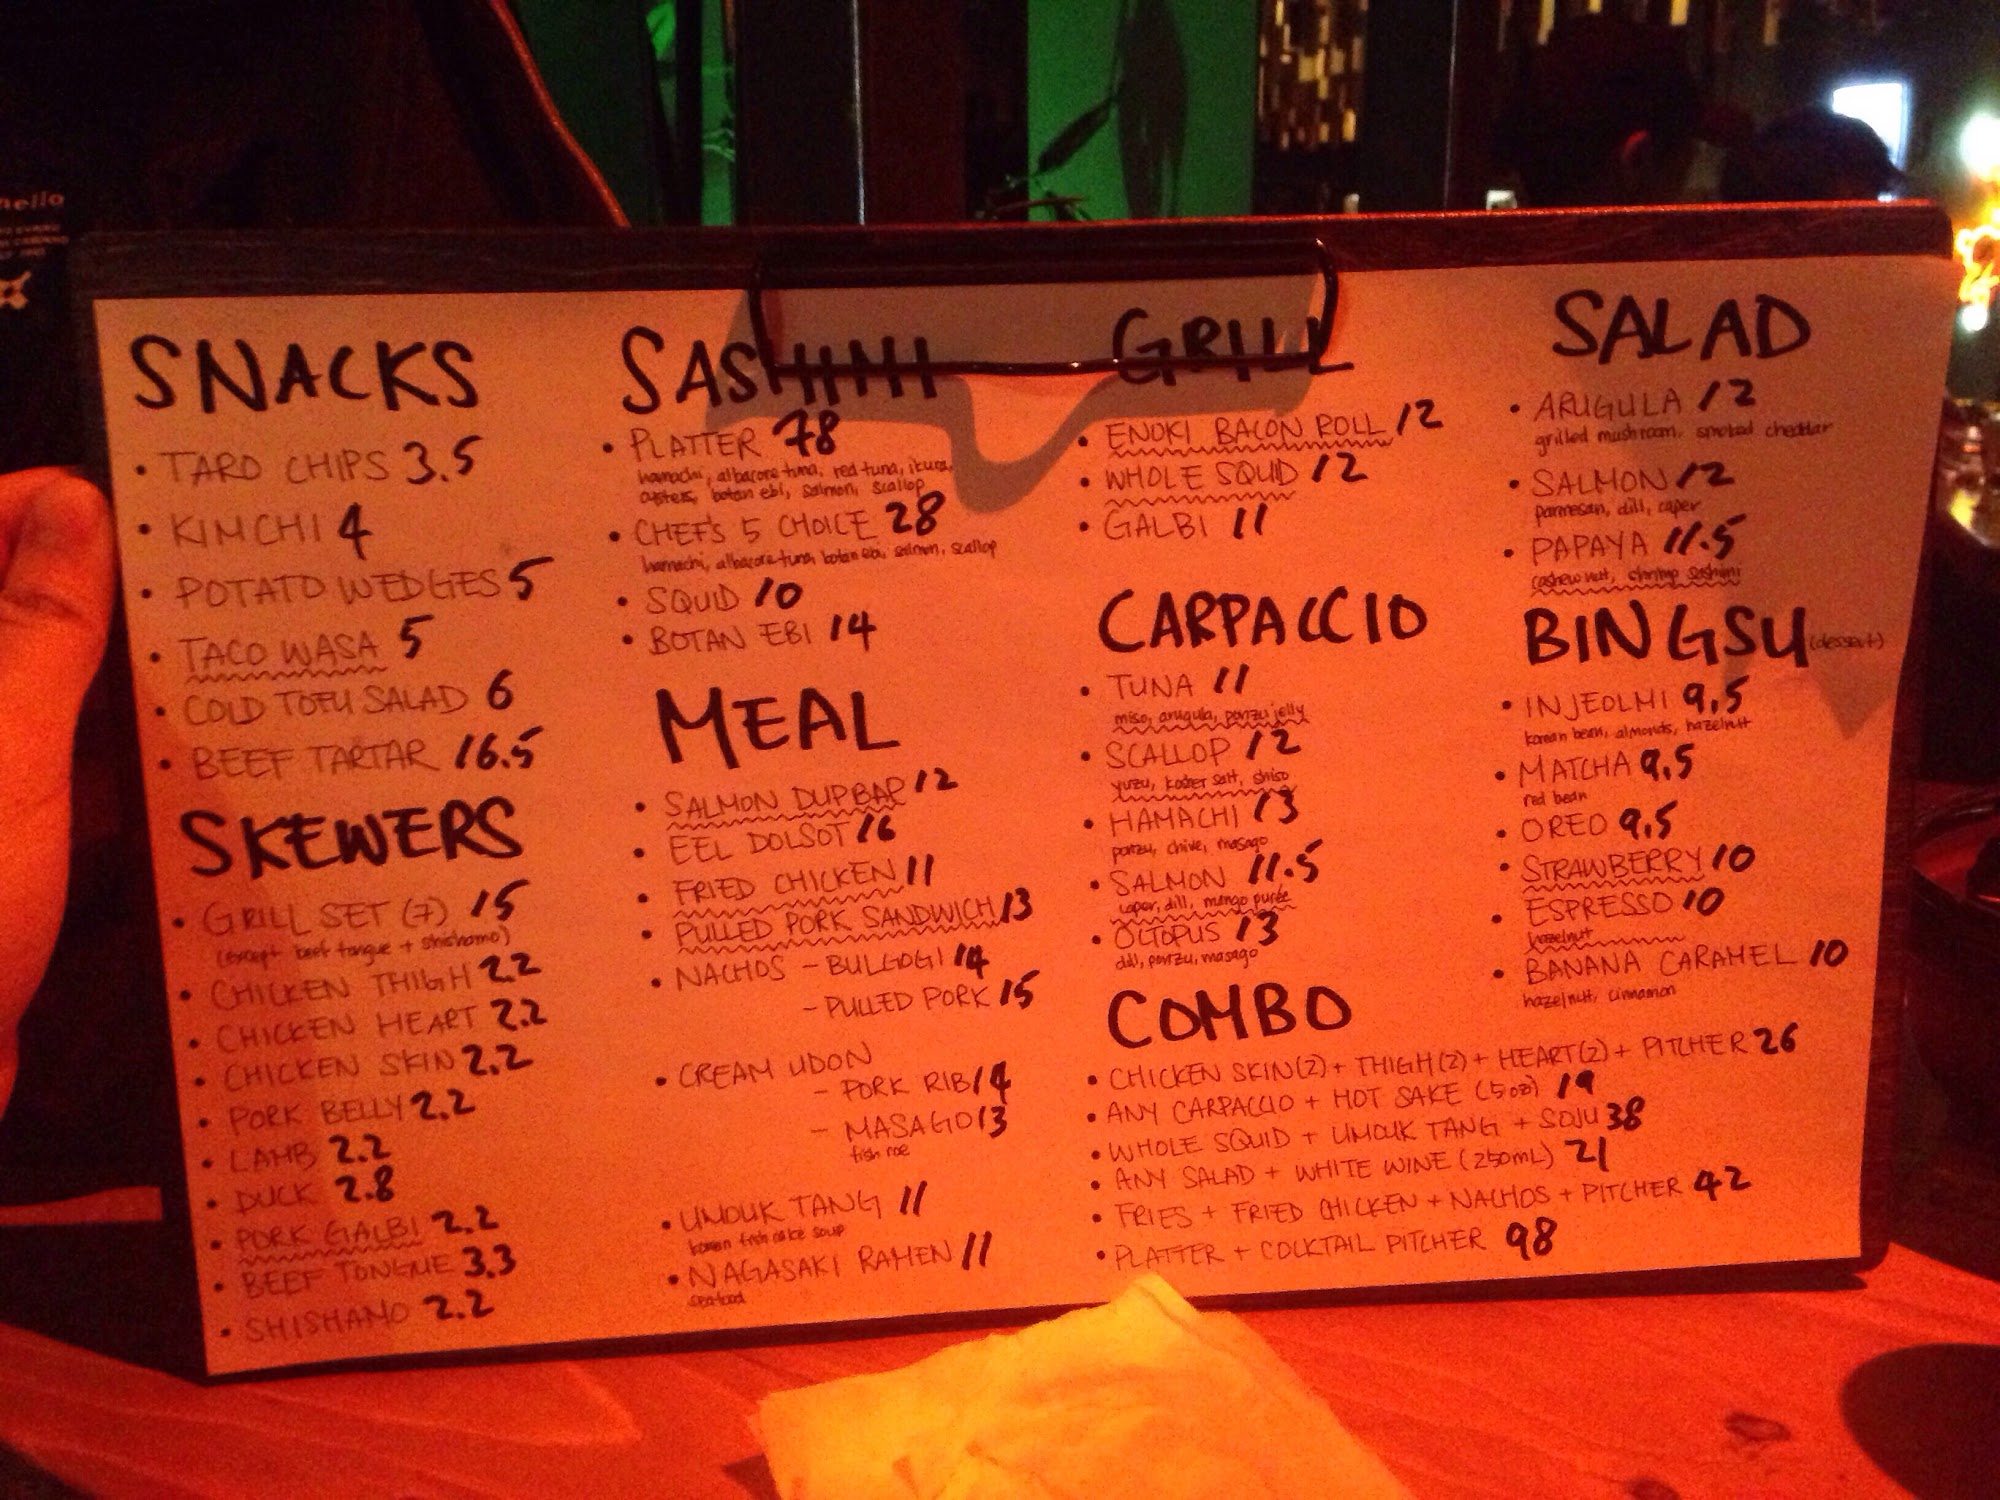 hello
SNACKS
• TARO CHIPS 3.5
• KIMCHI 4
• POTATO WEDGES 5
• TACO WASA 5
• COLD TOFU SALAD 6
• BEEF TARTAR 16.5
SKEWERS
• GRILL SET (7) 15
(except beef tongue + shishamo)
• CHICKEN THIGH 2.2
• CHICKEN HEART 2.2
• CHICKEN SKIN 2.2
• PORK BELLY 2.2
• LAMB 2.2
• DUCK 2.8
• PORK GALBI 2.2
• BEEF TONGUE 3.3
• SHISHAMO 2.2
SASHIMI
• PLATTER 78
hamachi, albacore tuna, red tuna, ikura,
oysters, botan ebi, salmon, scallop
• CHEF'S 5 CHOICE 28
hamachi, albacore tuna, botan ebi, salmon, scallop
• SQUID 10
• BOTAN EBI 14
MEAL
• SALMON DUPBAP 12
• EEL DOLSOT 16
• FRIED CHICKEN 11
• PULLED PORK SANDWICH 13
• NACHOS - BULGOGI 14
- PULLED PORK 15
• CREAM UDON
- PORK RIB 14
- MASAGO 13
fish roe
• UMOUK TANG 11
korean fish cake soup
• NAGASAKI RAMEN 11
seafood
GRILL
• ENOKI BACON ROLL 12
• WHOLE SQUID 12
• GALBI 11
CARPACCIO
• TUNA 11
miso, arugula, ponzu jelly
• SCALLOP 12
yuzu, kosher salt, shiso
• HAMACHI 13
ponzu, chive, masago
• SALMON 11.5
caper, dill, mango purée
• OCTOPUS 13
dill, ponzu, masago
COMBO
• CHICKEN SKIN(2) + THIGH(2) + HEART(2) + PITCHER 26
• ANY CARPACCIO + HOT SAKE (5oz) 19
• WHOLE SQUID + UMOUK TANG + SOJU 38
• ANY SALAD + WHITE WINE (250mL) 21
• FRIES + FRIED CHICKEN + NACHOS + PITCHER 42
• PLATTER + COCKTAIL PITCHER 98
SALAD
• ARUGULA 12
grilled mushroom, smoked cheddar
• SALMON 12
parmesan, dill, caper
• PAPAYA 11.5
cashew nut, shrimp sashimi
BINGSU (dessert)
• INJEOLMI 9.5
korean bean, almonds, hazelnutt
• MATCHA 9.5
red bean
• OREO 9.5
• STRAWBERRY 10
• ESPRESSO 10
hazelnut
• BANANA CARAMEL 10
hazelnutt, cinnamon